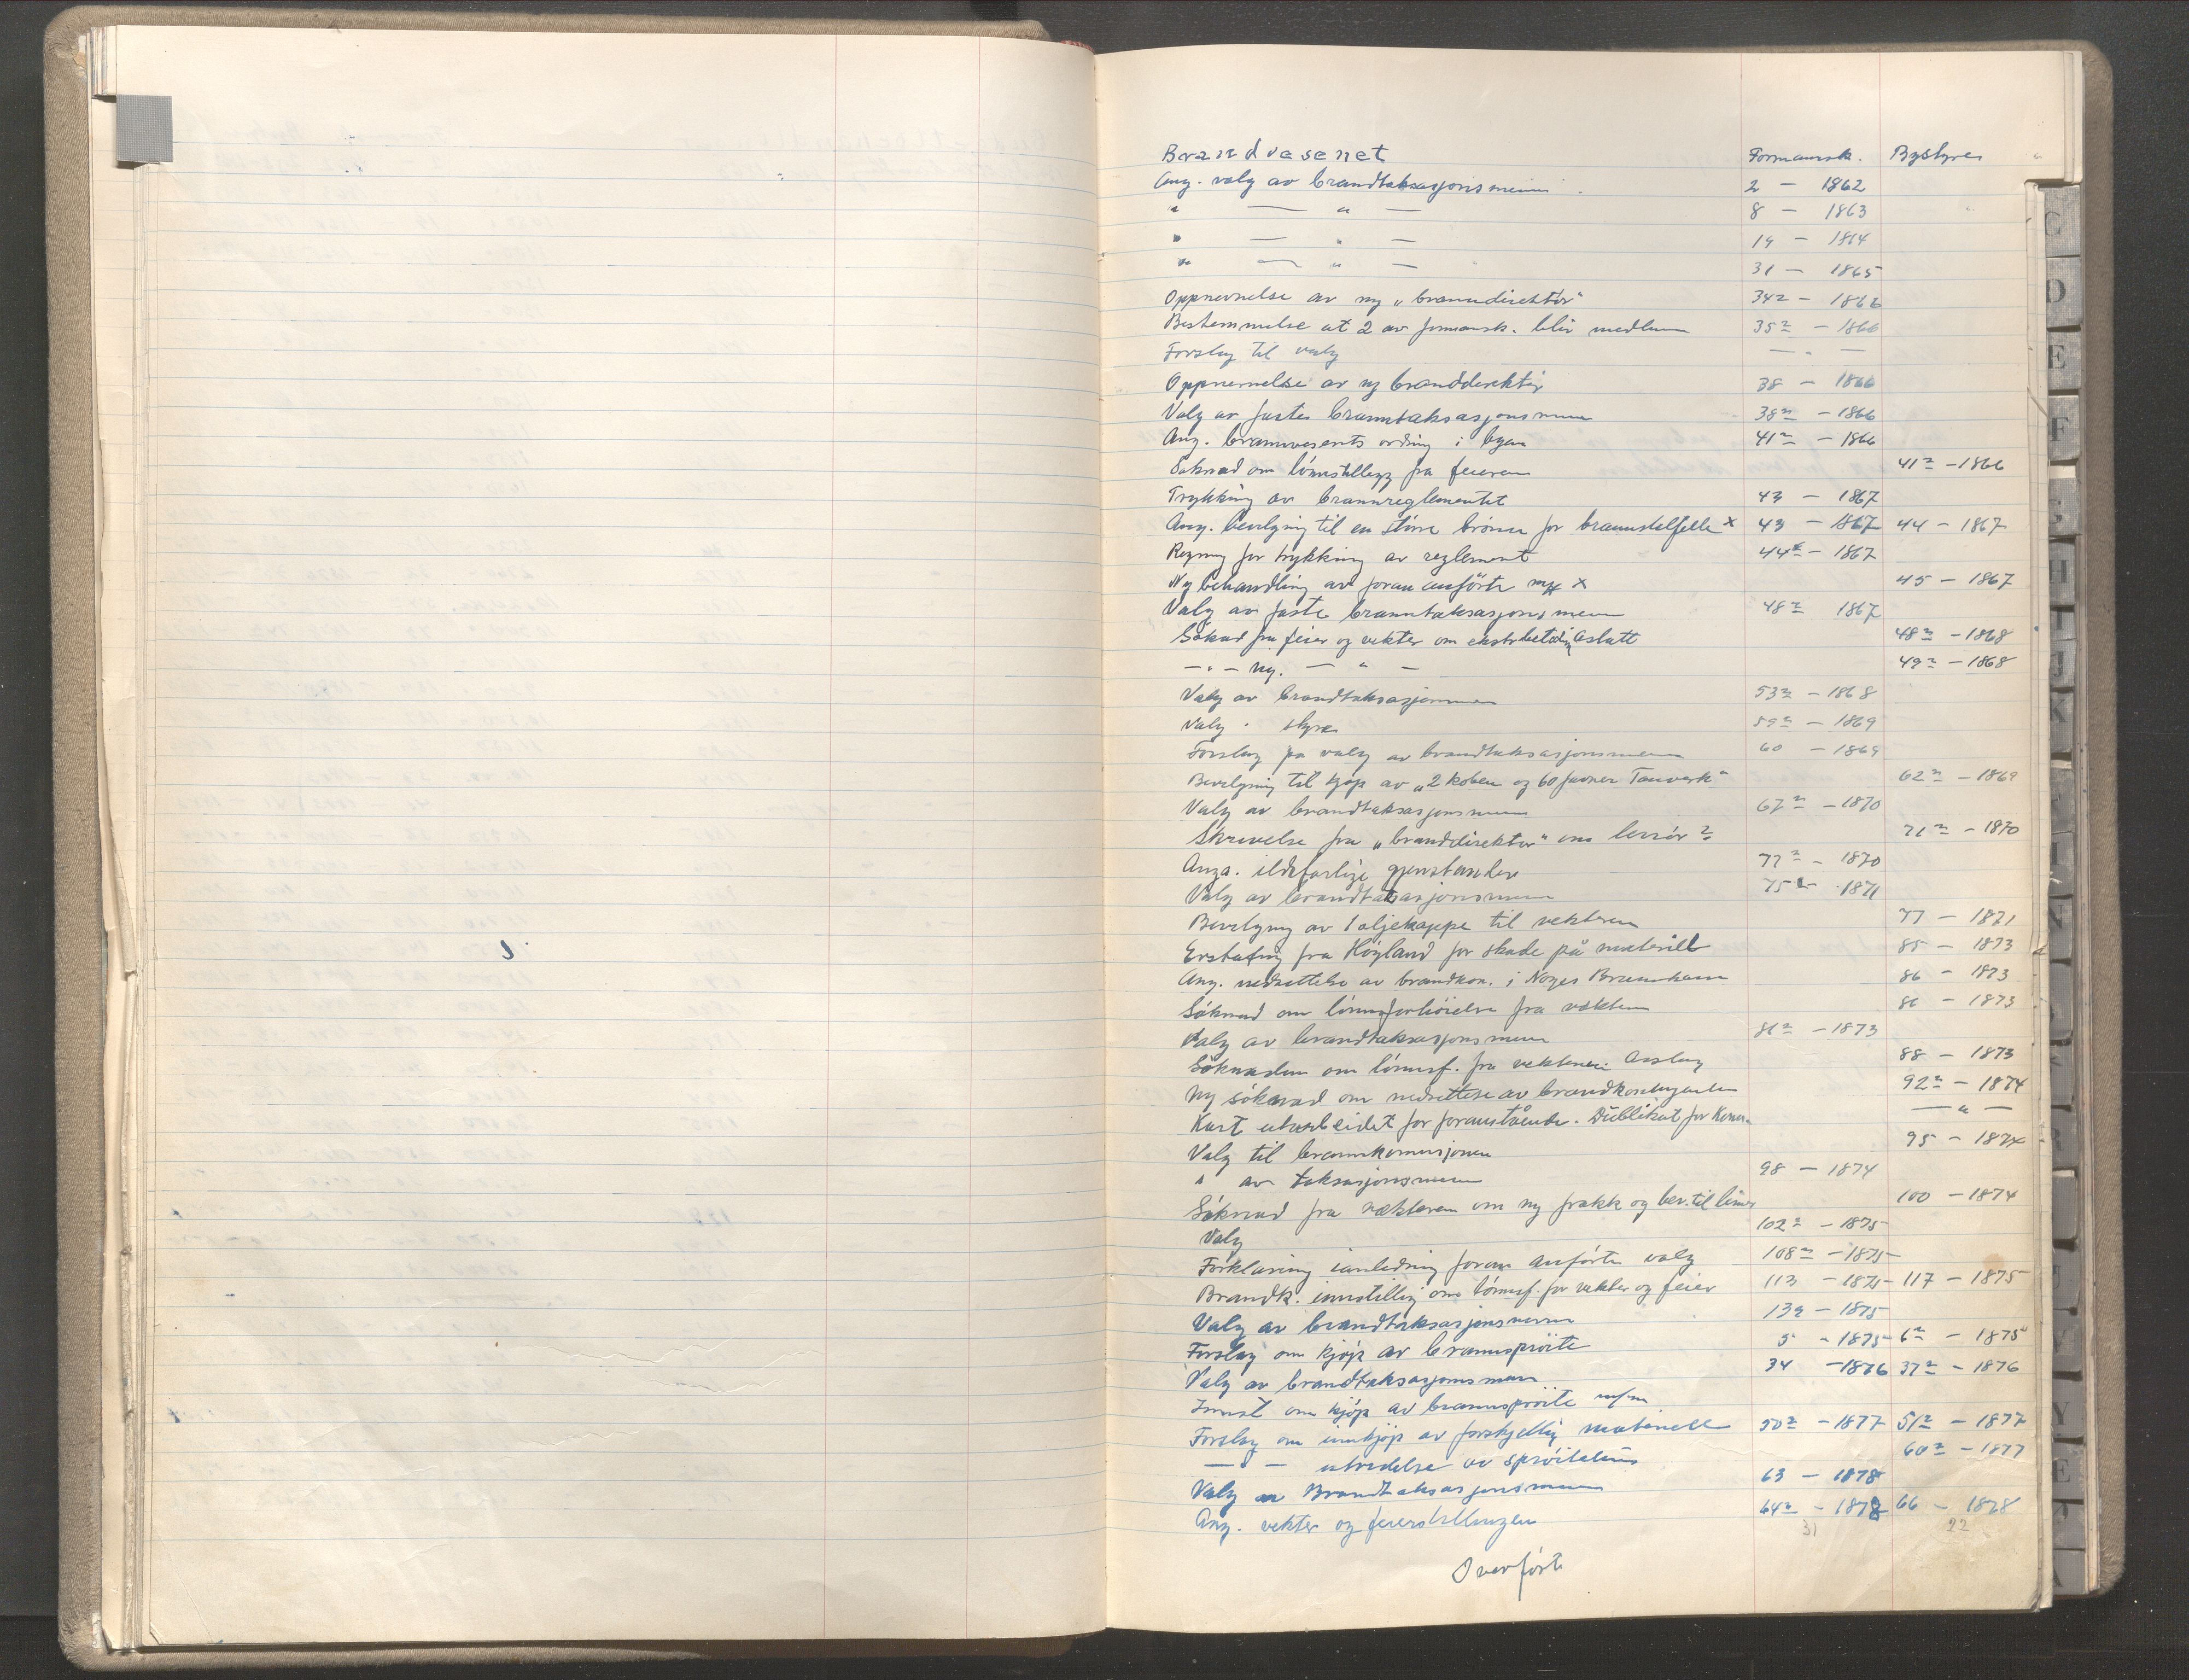 Brandvesenet Formannsk. Bystyret
Ang. valg av brandtaksasjonsmenn 2 - 1862
" — " — 8 - 1863
" — " — 14 - 1864
" — " — 31 - 1865
Oppnevnelse av ny „branndirektör" 342 - 1866
Bestemmelse at 2 av formansk. blir medlem 352 - 1866
Forslag til valg — " —
Oppnevnelse av ny branddirektör 38 - 1866
Valg av faste branntaksasjonsmenn 382 - 1866
Ang. brannvesents ordning i byen 412 - 1866
Søknad om lönnstillegg fra feieren 412 - 1866
Trykking av brannreglementet 43 - 1867
Ang. bevilgning til en större brönn for branntilfelle x 43 - 1867 44 - 1867
Regning for trykking av reglement 442 - 1867
Ny behandling av foran anförte x 45 - 1867
Valg av faste branntaksasjonsmenn 482 1867
Söknad fra feier og vekter om ekstrbetaling Aslått 482 - 1868
— " — ny. — " — 492 - 1868
Valg av brandtaksasjonsmenn 532 - 1868
Valg " styre 592 - 1869
Forslag på valg av brandtaksasjonsmenn 60 - 1869
Bevilgning til kjøp av „2 kober og 60 favner Tauverk" 622 - 1869
Valg av brandtaksasjonsmenn 672 - 1870
Skrivelse fra „branddirektør" om 712 - 1870
Anga. ildsfarlige gjenstander 722 - 1870
Valg av brandtaksasjonsmenn 752 - 1871
Bevilgning av 1 oljekappe til vekteren 77 - 1871
Erstatning fra Höyland for skade på materiell 85 - 1873
Ang. nedsettelse av brandkon. i Norges Brannkasse 86 - 1873
Söknad om lönnsforhöielse fra vekteren 86 - 1873
Valg av brandtaksasjonsmenn 862 - 1873
Söknaden om lönnsf. fra vekteren: Avslag 88 - 1873
Ny söknad om nedsettelse av brandkontingenten 922 - 1874
Kart utarbeidet for foranstående. Dublikat for Komm. — " —
Valg til brannkommisjonen 95 - 1874
" av taksasjonsmenn 98 - 1874
Söknad fra vækteren om ny frakk og bev. til 100 - 1874
Valg 1022 - 1875
Forklaring i anledning foran anförte valg 1082 - 1875
Brandk. innstilling om lönnsf. for vekter og feier 113 - 1875 117 - 1875
Valg av brandtaksasjonsmenn 139 - 1875
Forslag om kjöp av brannspröite 5 - 1875 62 - 1875
Valg av brandtaksasjonsmenn 34 - 1876 372 - 1876
Innst om kjöp av brannspröite m/m
Forslag om innkjöp av forskjellig materiell 502 - 1877 512 - 1877
— " — utvidelse av spröitehus 602 - 1877
Valg av Brandtaksasjonsmenn 63 - 1878
Ang. vekter og feierstillingen 642 - 1878 66 - 1878
31 22
Overført